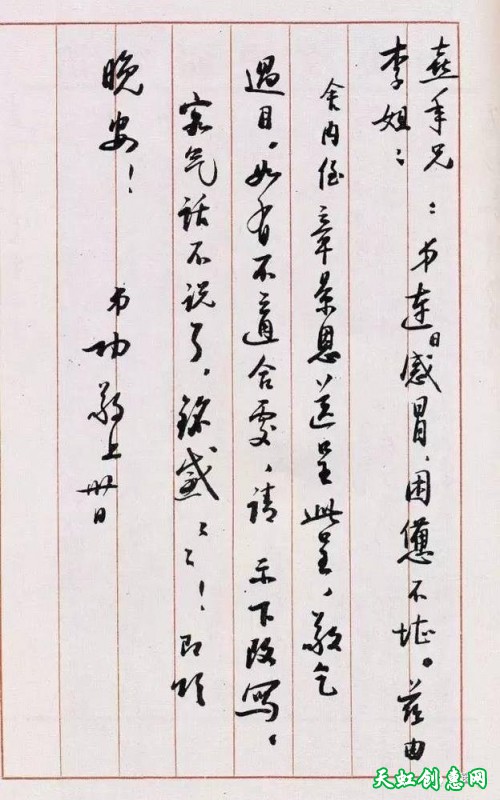 熹年兄
李姐：：弟連日感冒，困憊不堪。兹由
舍内侄章景恩送呈此呈，敬乞
過目，如有不適合處，請 示下改寫。
客气話不説了，銘感ミミ！即頌
晚安！
弟功敬上 卅日
天虹创惠网